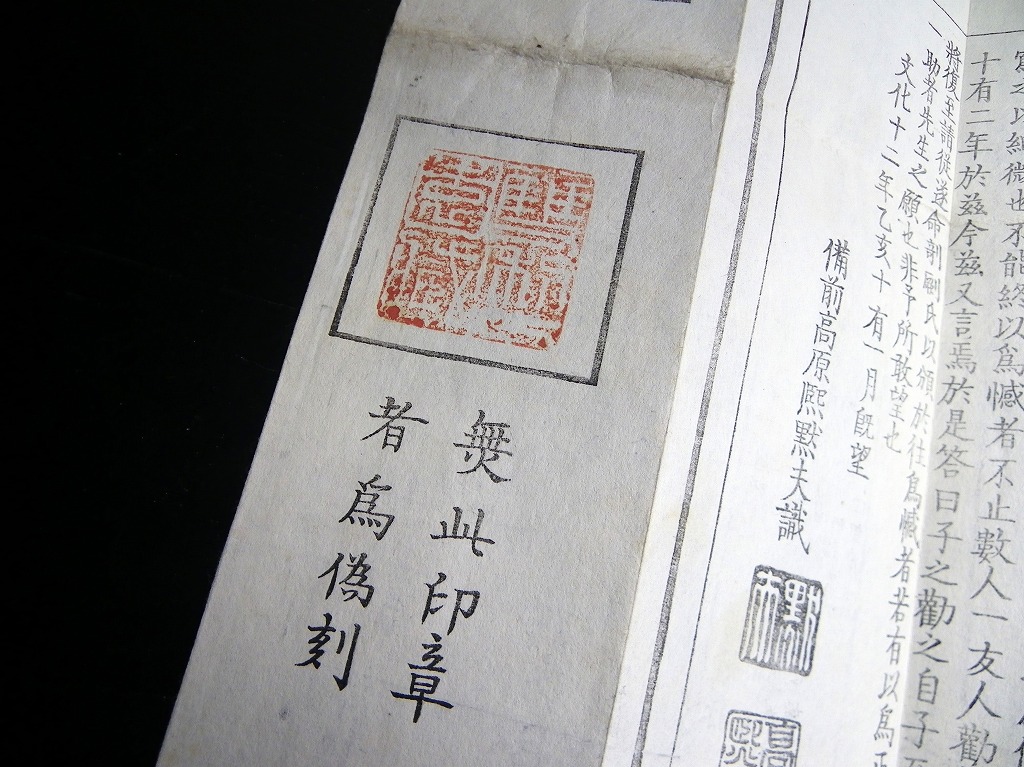 以細微也不能終以爲憾者不止數人一友人勸
十有二年於玆今玆又言焉於是答曰子之勸之自子
將復至請從遂命剞劂氏以頒於往爲憾者若有以爲
助者先生之願也非予所敢望也
文化十二年乙亥十有一月旣望
備前高原熙默夫識
默夫
高
熙
無此印章
者爲偽刻